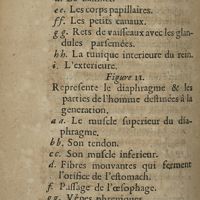 ee. Les corps papillaires.
ff. Les petits canaux.
gg. Rets de vaisseaux avec les glan-
dules parsemées.
hh. La tunique interieure du rein.
i. L'exterieure.
Figure II.
Represente le diaphragme & les
parties de l'homme destinées à la
generation.
aa. Le muscle superieur du dia-
phragme.
bb. Son tendon.
cc. Son muscle inferieur.
d. Fibres mouvantes qui ferment
l'orifice de l'estomach.
f. Passage de l'œsophage.
gg. Vénes phreniques.